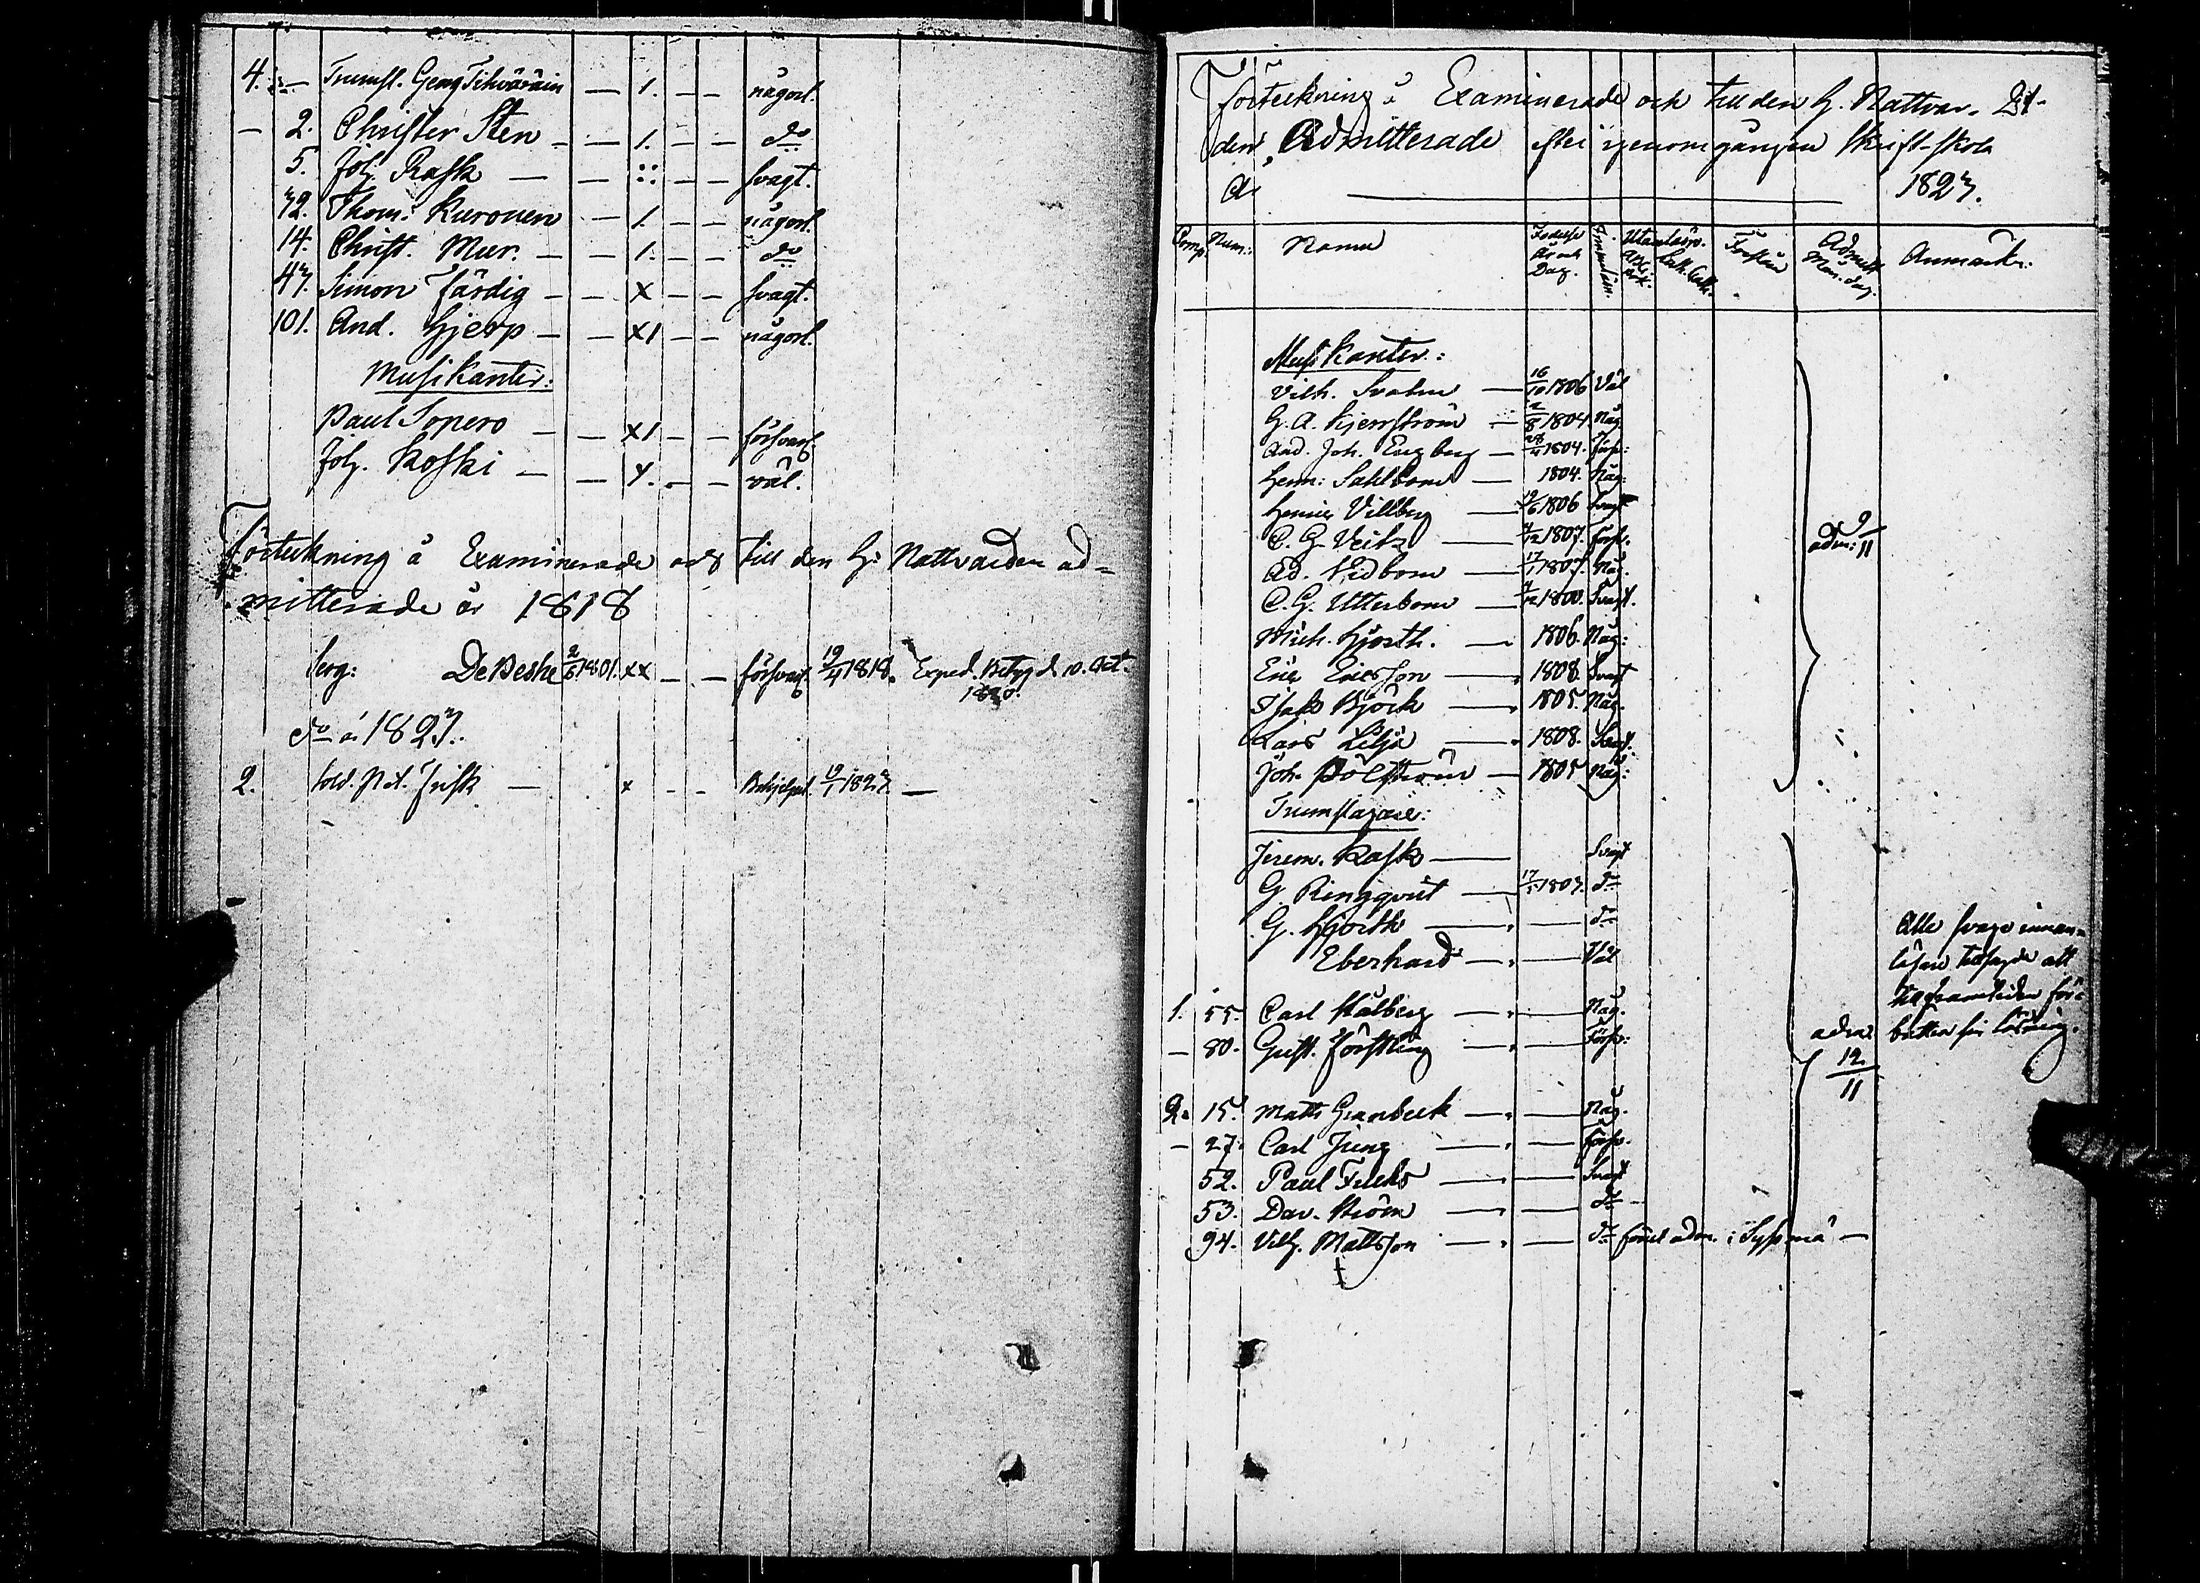 4. — Trumsl. Georg — 1. — — någorl.
— 2. Christer Sten — — 1. — — do
5. Joh. Rask — — :: — — svagt.
72. Thom. Kuronen — 1. — — någorl.
14. Christ. Mur. — — 1. — — do
47. Simon Färdig — — x — — svagt.
101. And. Hjerp — — x1 — — någorl.
Musikanter:
Paul Sopero — — x1 — — försvarl.
Joh. Koski — — — — väl.
Förteckning å Examinerade och till den H. Nattvarden ad=
mitterade år 1818
Serg: DePeshe 1801. xx — — försvarl. 19/4 1818. Exped. Betyg d. 10. Oct.
do å 1827.
2. Sold. Pet. Frisk — x — — 19/1 1827 —
Förteckning å Examinerade och till den H. Nattvar-
den Admitterade efter igenomgången Skrift-skola
1827.
Comp. Num: Namn Födelse År och Dag. Utanläsn. Förstånd Admitt. Mån. dag. Anmärkn:
Musikanter:
Vilh. Svahn — 16/10 1806 Väl
G. A. Kjerrström — 2/8 1804. Någ.
And. Joh. Engberg — 28/4 1804. Förs:
Herm: Sahlbom — 1804. Någ:
Henric Villberg — 19/6 1806 Svagt
C. G. Veitz — 4/12 1807. Förs.
Ad. Vidbom — 17/1 1807. Någ.
adm: 9/11
C. G. Utterbom — Svagt.
Mich. Hjorth. — 1806. Någ:
Eric Ericsson — 1808. Svagt
Isak Björk — 1805. Någ.
Lars Lilja — 1808. Svagt.
Joh. — 1805 Någ:
Trumslagare:
Jerem. Rask — Svagt
G. Ringqvist — do
G. Hjorth — — do
Eberhard — — Väl
1. 55. Carl Stålberg — — Någ.
— 80. Gust. Förstling — — Förs:
Alla svage innan=
läsare att
framtiden för=
bättra sin läsning.
adm. 12/11
2. 15. Matts Granbeck — — Någ.
— 27. Carl Jung — — Förs.
52. Paul Fuchs — — Svagt
53. Dav. Ström — — do
94. Vilh. Mattsson — — do förut adm. i Sysmä —